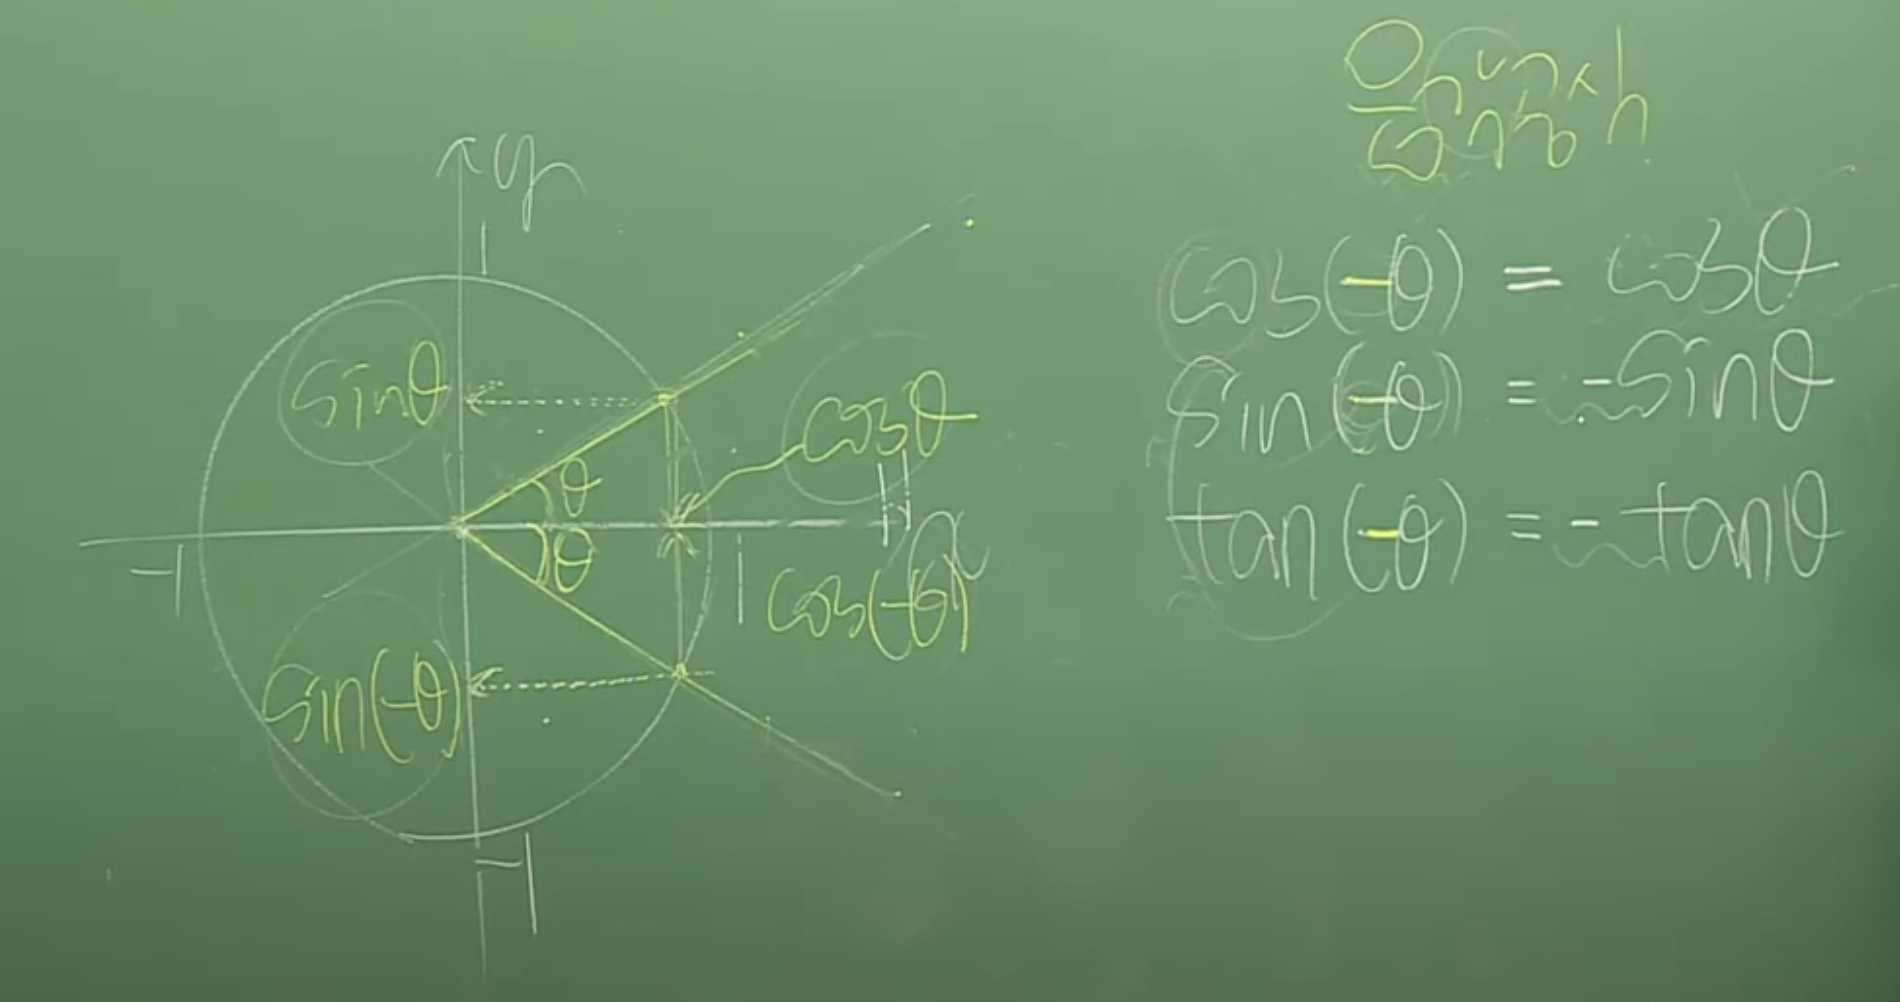 y
1
sinθ
θ
cosθ
θ
-1
1
x
cos(-θ)
sin(-θ)
-1
cos(-θ) = cosθ
sin(-θ) = -sinθ
tan(-θ) = -tanθ